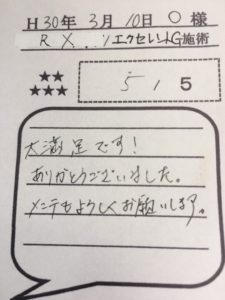 H30年 3月10日 〇様
RX...エクセレントG施術
★★
★★★
5/5
大満足です!
ありがとうございました。
メンテもよろしくお願いします。